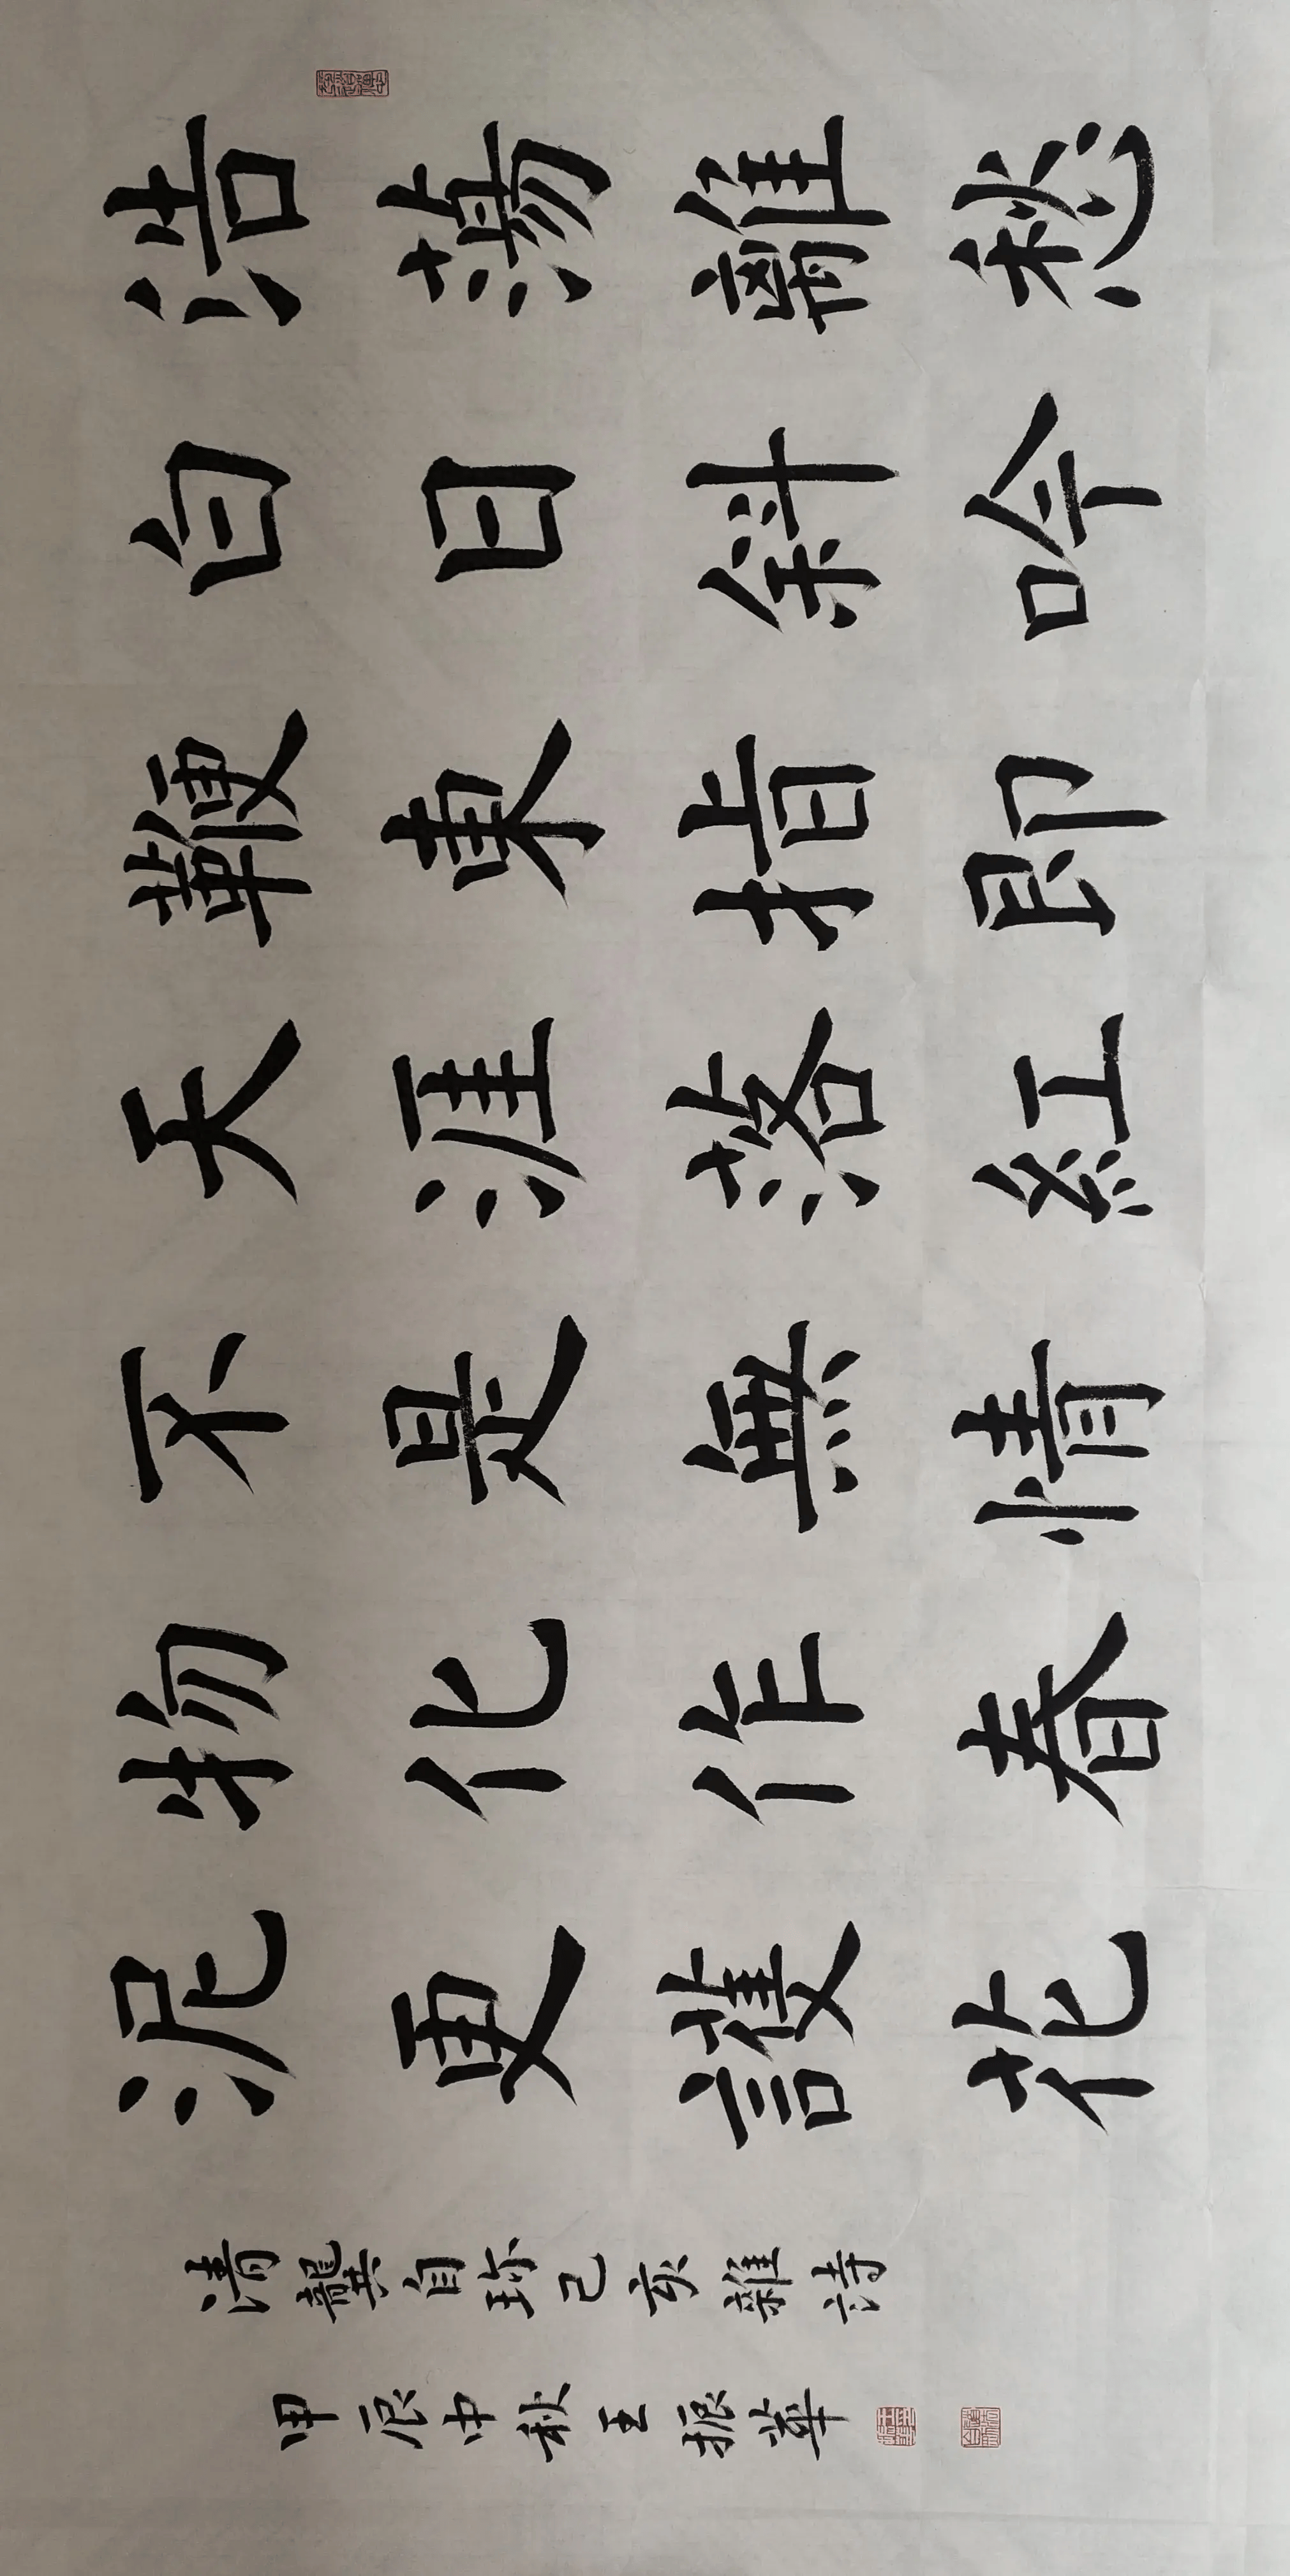 浩蕩離愁
白日斜吟
鞭東指即
天涯落紅
不是無情
物化作春
泥更護花
清龔自珍己亥雜詩
甲辰中秋王振華